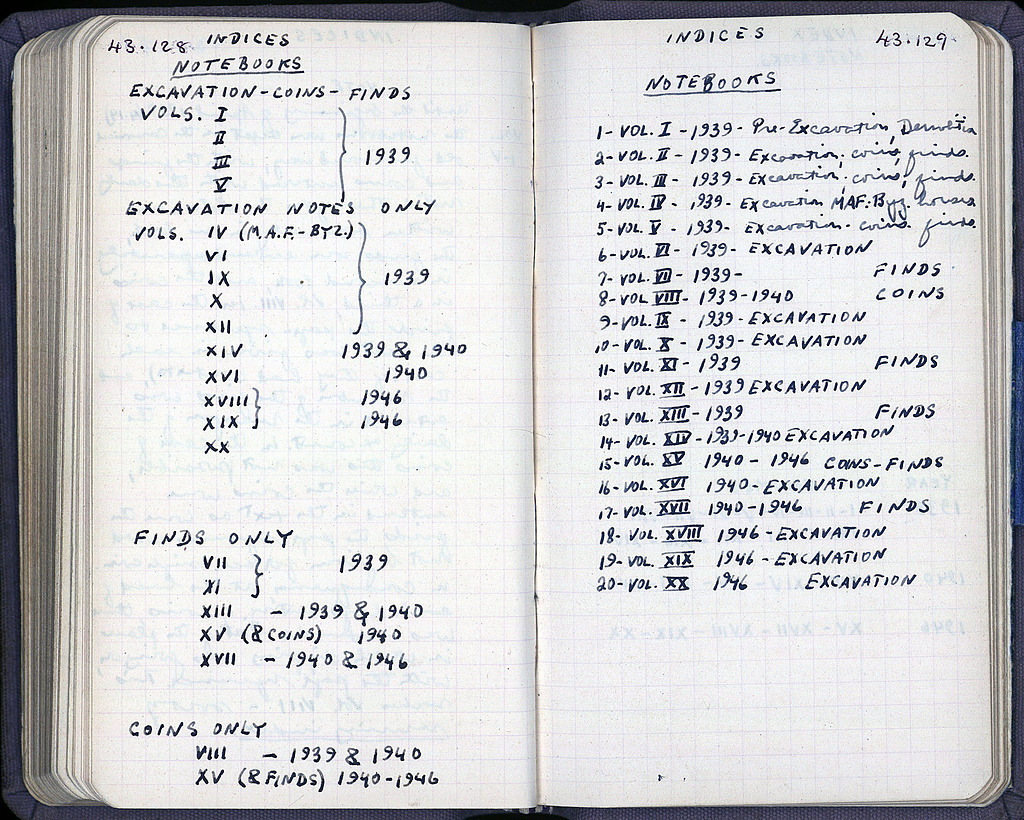 43.128 INDICES
NOTEBOOKS
EXCAVATION-COINS-FINDS
VOLS. I
II
III 1939
V
EXCAVATION NOTES ONLY
VOLS. IV (M.A.F.-BYZ.)
VI
IX 1939
X
XII
XIV 1939 & 1940
XVI 1940
XVIII 1946
XIX 1946
XX
FINDS ONLY
VII 1939
XI
XIII - 1939 & 1940
XV (& COINS) 1940
XVII - 1940 & 1946
COINS ONLY
VIII - 1939 & 1940
XV (& FINDS) 1940-1946
INDICES 43.129
NOTEBOOKS
1- VOL. I - 1939 - Pre-Excavation, Demolition
2- VOL. II - 1939 - Excavation, coins, finds.
3- VOL. III - 1939 - Excavation, coins, finds.
4- VOL. IV - 1939 - Excavation MAF. Byz. houses
5- VOL. V - 1939 - Excavation - coins, finds.
6- VOL. VI - 1939 - EXCAVATION
7- VOL. VII - 1939 - FINDS
8- VOL VIII - 1939-1940 COINS
9- VOL. IX - 1939 - EXCAVATION
10- VOL. X - 1939 - EXCAVATION
11- VOL. XI - 1939 FINDS
12- VOL. XII - 1939 EXCAVATION
13- VOL. XIII - 1939 FINDS
14- VOL. XIV - 1939-1940 EXCAVATION
15- VOL. XV 1940 - 1946 COINS-FINDS
16- VOL. XVI 1940 - EXCAVATION
17- VOL. XVII 1940-1946 FINDS
18- VOL. XVIII 1946 - EXCAVATION
19- VOL. XIX 1946 - EXCAVATION
20- VOL. XX 1946 EXCAVATION